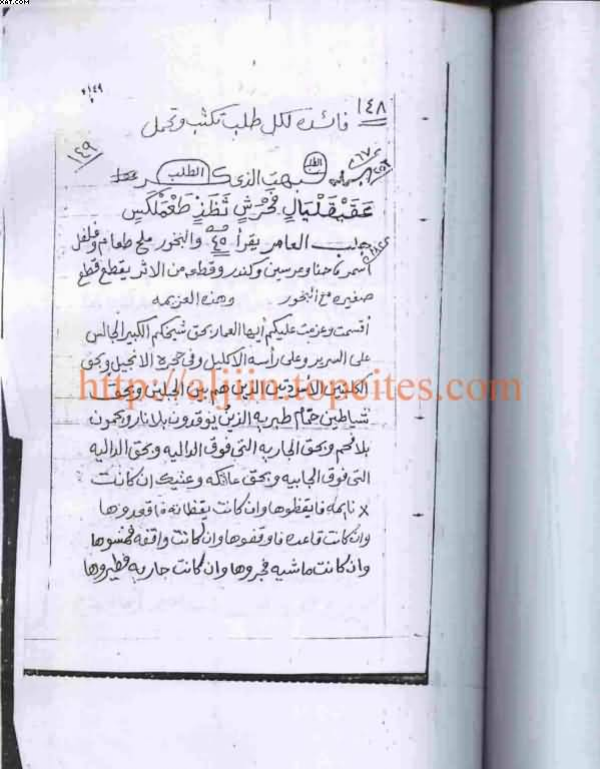 XAT.COM
١٤٩
١٤٨ فائدة لكل طلب تكتب وتحمل
١٤٩
فبهت الذي كفر الطلب
عقيقليال فخرش تظز طغملكس
جلب العامر يقرأ ٤٥ والبخور ملح طعام وفلفل
اسمر ناحنا ومرسين وكندر وقطعه من الاثر يقطع قطع
صغيره مع البخور وهذه العزيمه
أقسمت وعزمت عليكم أيها العمار بحق شيخكم الكبير الجالس
على السرير وعلى رأسه الاكليل وفي حجره الانجيل وبحق
الكلبين الاسودين الذين هم بين الجبلين وبحق
شياطين حمام طبريه الذين يوقدون بلا نار ويحمون
بلا فحم وبحق الجاريه التي فوق الداليه وبحق الداليه
التي فوق الجابيه وبحق عانكه وعنيك ان كانت
x نايمه فايقظوها وان كانت يقظانه فاقعدوها
وان كانت قاعده فاوقفوها وان كانت واقفه فمشوها
وان كانت ماشيه فجروها وان كانت جاريه فطيروها
http://aljjin.topcites.com